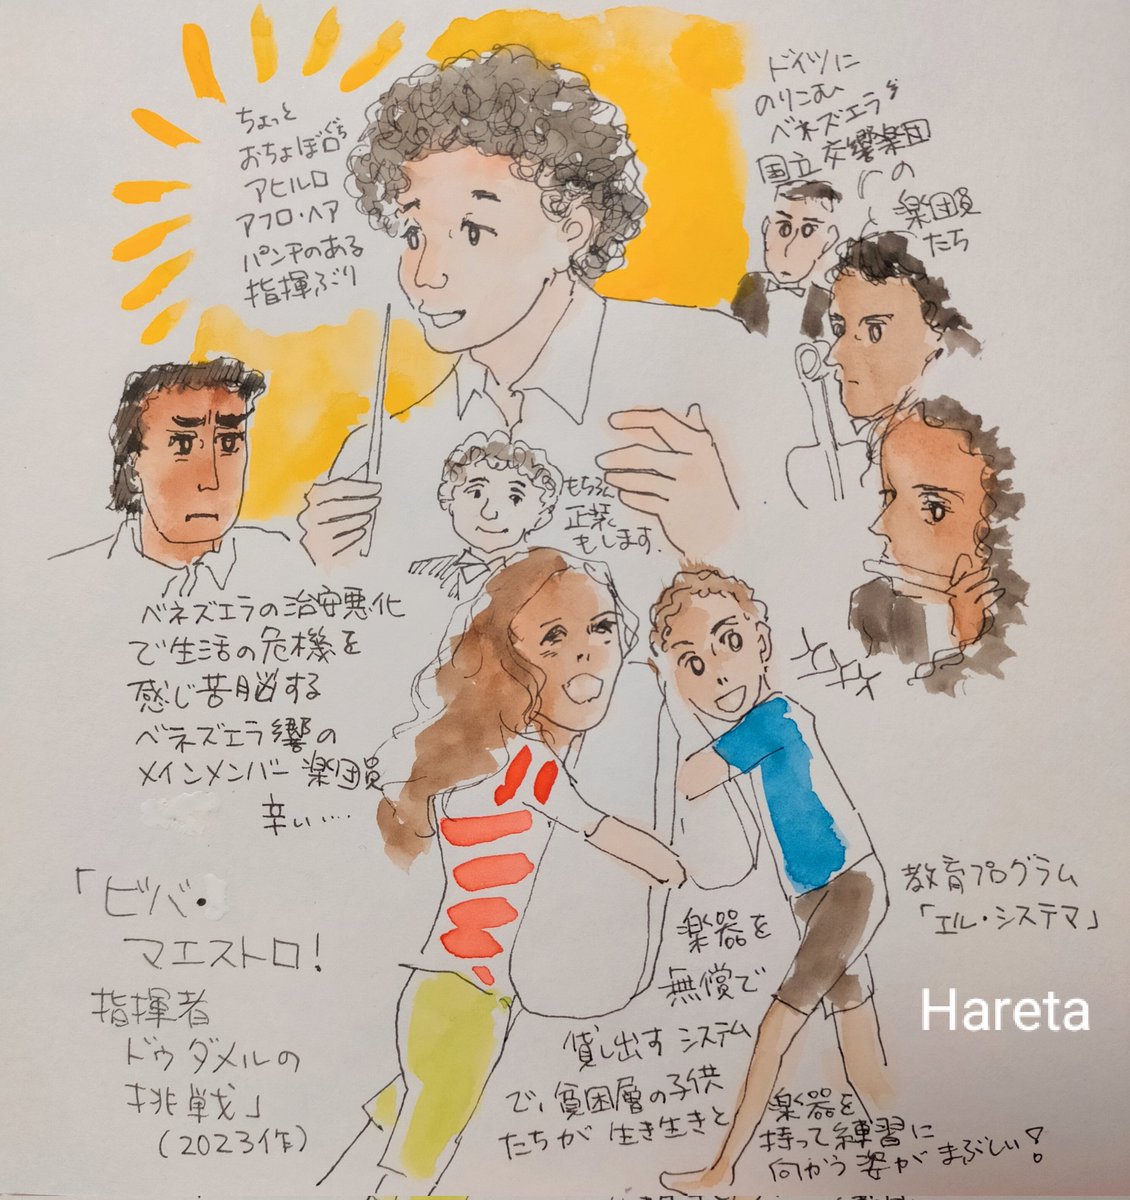 ちょっと
おちょぼ口
アヒル口
アフロ・ヘア
パンチのある
指揮ぶり
ドイツに
のりこむ
ベネズエラ
国立交響楽団
の
楽団員
たち
もちろん
正装
もします.
ベネズエラの治安悪化
で生活の危機を
感じ苦脳する
ベネズエラ響の
メインメンバー楽団員
辛い…
「ビバ・
マエストロ!
指揮者
ドゥダメルの
挑戦」
(2023作)
教育プログラム
「エル・システマ」
楽器を
無償で
貸し出すシステム
で、貧困層の子供
たちが生き生きと
楽器を
持って練習に
向かう姿がまぶしい!
Hareta